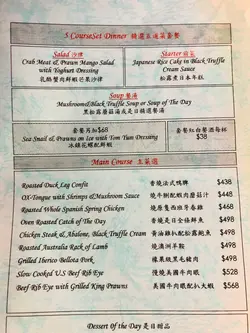 5 CourseSet Dinner 精選五道菜套餐
Salad 沙律
Crab Meat & Prawn Mango Salad
with Yoghurt Dressing
乳酪蟹肉鮮蝦芒果沙律
Starter 前菜
Japanese Rice Cake in Black Truffle
Cream Sauce
松露煮日本年糕
Soup 餐湯
Mushroom&Black Truffle Soup or Soup of The Day
黑松露蘑菇湯或是日精選餐湯
套餐另加$68
Sea Snail & Prawns on Ice with Tom Yum Dressing
冰鎮花螺配鮮蝦
套餐紅白餐酒每杯
$38
Main Course 主菜選
Roasted Duck Leg Confit 香燒法式鴨髀 $438
OX-Tongue with Shrimps &Mushroom Sauce 燒牛脷配蝦肉蘑菇汁 $448
Roasted Whole Spanish Spring Chicken 燒原隻西班牙春雞 $468
Oven Roasted Catch of The Day 香燒是日全條鮮魚 $498
Chicken Steak & Abalone, Black Truffle Cream 香油雞扒配松露鮑魚 $498
Roasted Australia Rack of Lamb 燒澳洲羊鞍 $498
Grilled Iberico Bellota Pork 橡果級黑毛豬肉 $498
Slow Cooked U.S Beef Rib Eye 慢燒美國牛肉眼 $528
Beef Rib Eye with Grilled King Prawns 美國牛肉眼配小大蝦 $568
Dessert Of the Day 是日甜品